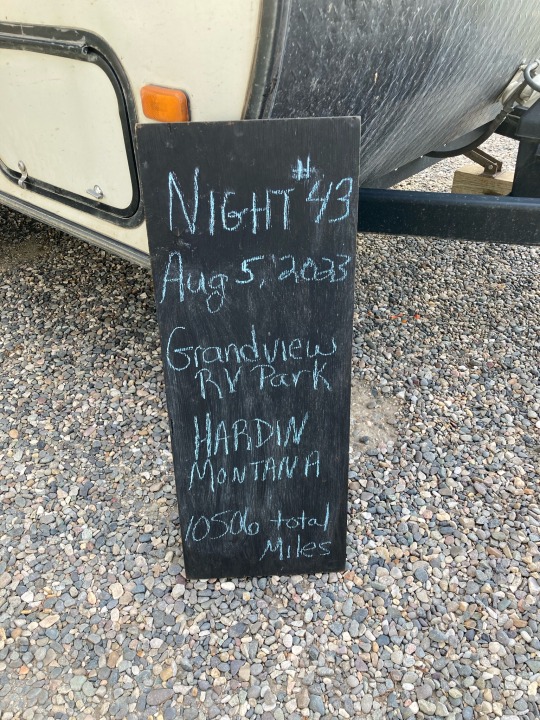 NIGHT #43
Aug 5, 2023
Grandview
RV Park
HARDIN
MONTANA
10506 total
Miles